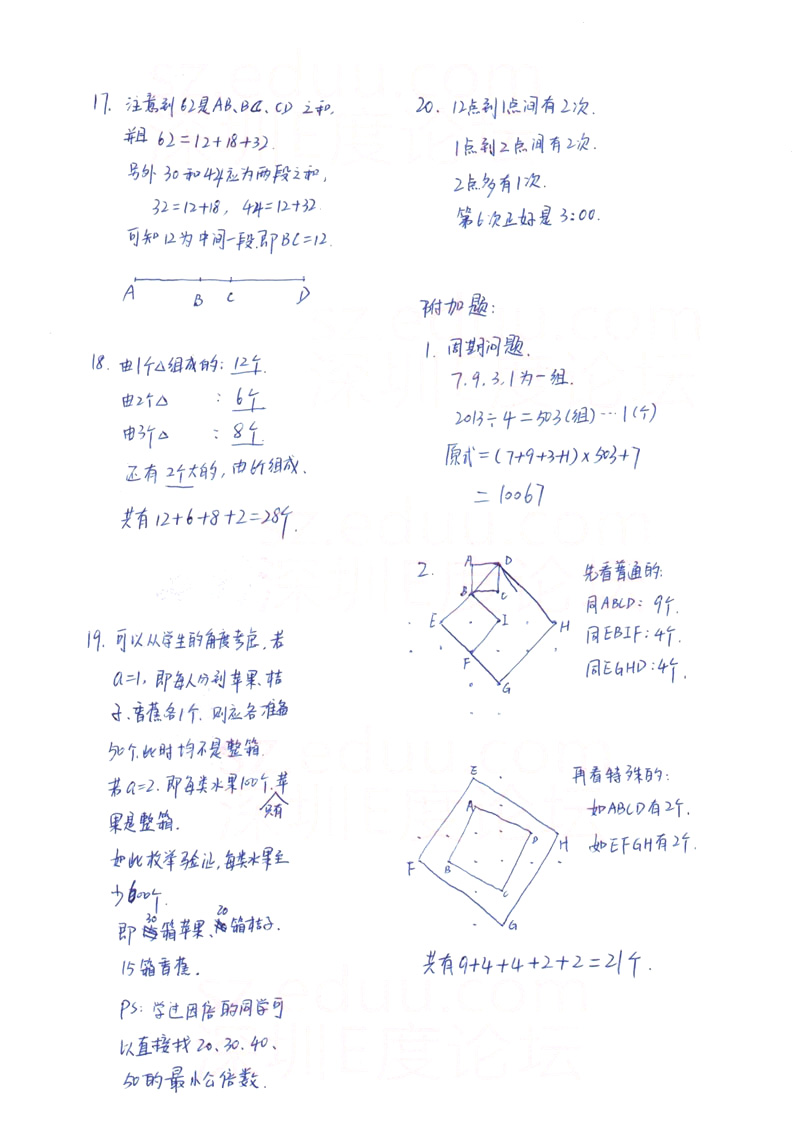 17. 注意到62是AB、BC、CD之和,
并且 62=12+18+32.
另外 30 和 44 应为两段之和,
32=12+18, 44=12+32.
可知12为中间一段,即BC=12.
A B C D
18. 由1个△组成的: 12个.
由2个△ : 6个
由3个△ : 8个
还有2个大的, 由6个组成.
共有12+6+8+2=28个.
19. 可以从学生的角度考虑. 若
a=1, 即每人分到苹果、桔
子、香蕉各1个. 则应各准备
50个.此时均不是整箱.
若a=2. 即每类水果100个.苹
只有
果是整箱.
如此枚举验证,每类水果至
少600个.
即30箱苹果、20箱桔子.
15箱香蕉.
PS: 学过因倍的同学可
以直接找 20、30、40、
50的最小公倍数.
20. 12点到1点间有2次.
1点到2点间有2次.
2点多有1次.
第6次正好是 3:00.
附加题:
1. 周期问题.
7.9.3.1为一组.
2013÷4=503(组)…1(个)
原式=(7+9+3+1)×503+7
=10067
2.
A D
B C
E I H
F
G
先看普通的:
同ABCD: 9个.
同EBIF: 4个.
同EGHD: 4个.
E
A
D
H
F B
C
G
再看特殊的:
如ABCD有2个.
如EFGH有2个.
共有9+4+4+2+2=21个.
sz.eduu.com
深圳E度论坛